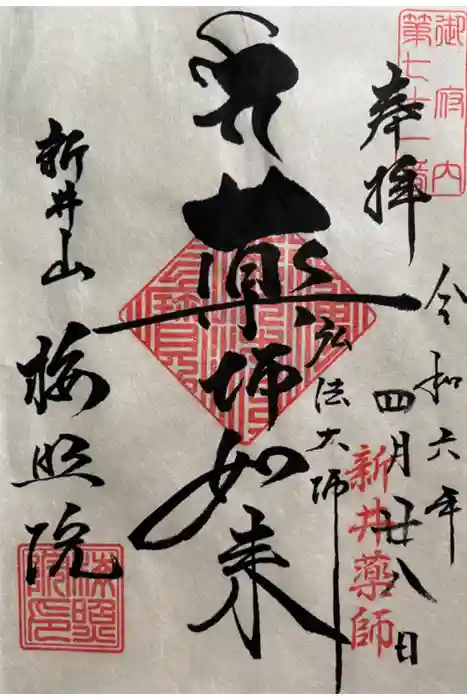 御府内
第七十一番
奉拝
令和六年
四月廿八日
新井薬師
弘法大師
薬師如来
新井山
梅照院